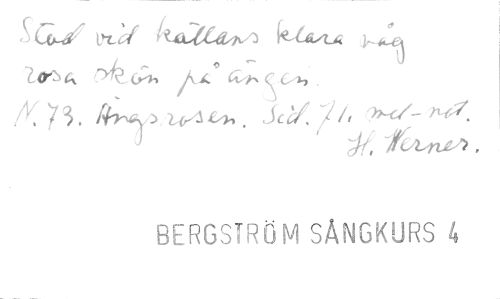 Stod vid källans klara våg
rosa skön på ängen.
N. 73. Ängsrosen. Sid. 71. mel-not.
H. Werner.
BERGSTRÖM SÅNGKURS 4